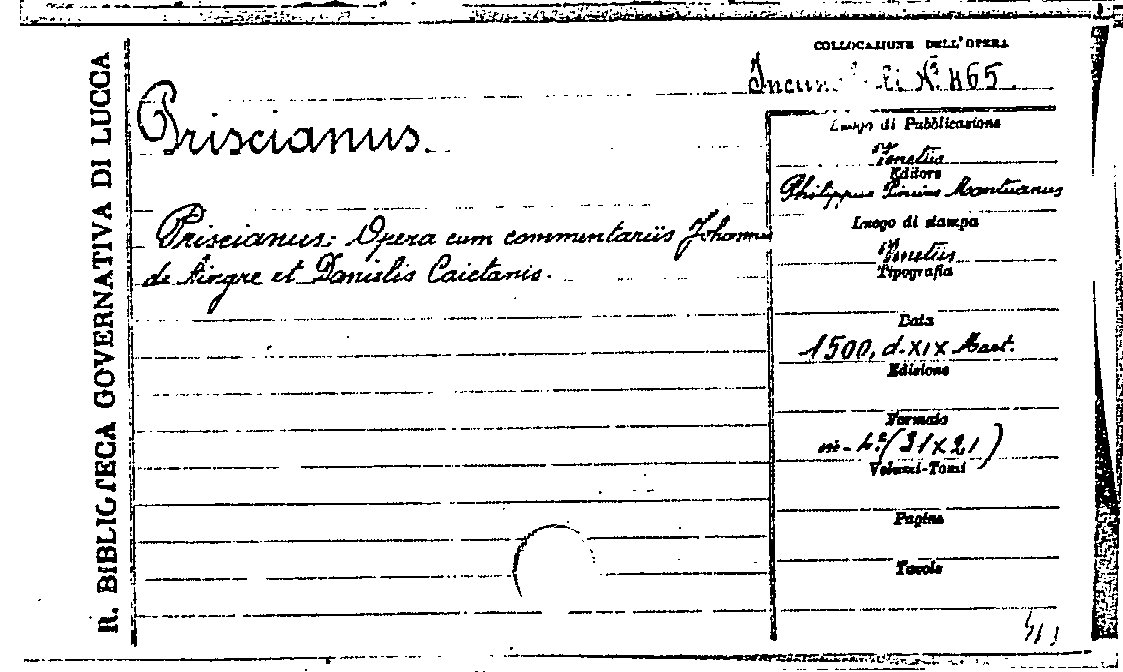 R. BIBLIOTECA GOVERNATIVA DI LUCCA
COLLOCAZIONE DELL'OPERA
N.º 465.
Priscianus.
Luogo di Pubblicazione
Venetiis
Editore
Philippus Pincius Mantuanus
Priscianus: Opera cum commentariis Johannis
de Aingre et Danielis Caietanis.
Luogo di stampa
Venetiis
Tipografia
Data
1500, d. XIX Mart.
Edizione
Formato
in-4.º (31x21)
Volumi-Tomi
Pagine
Tavole